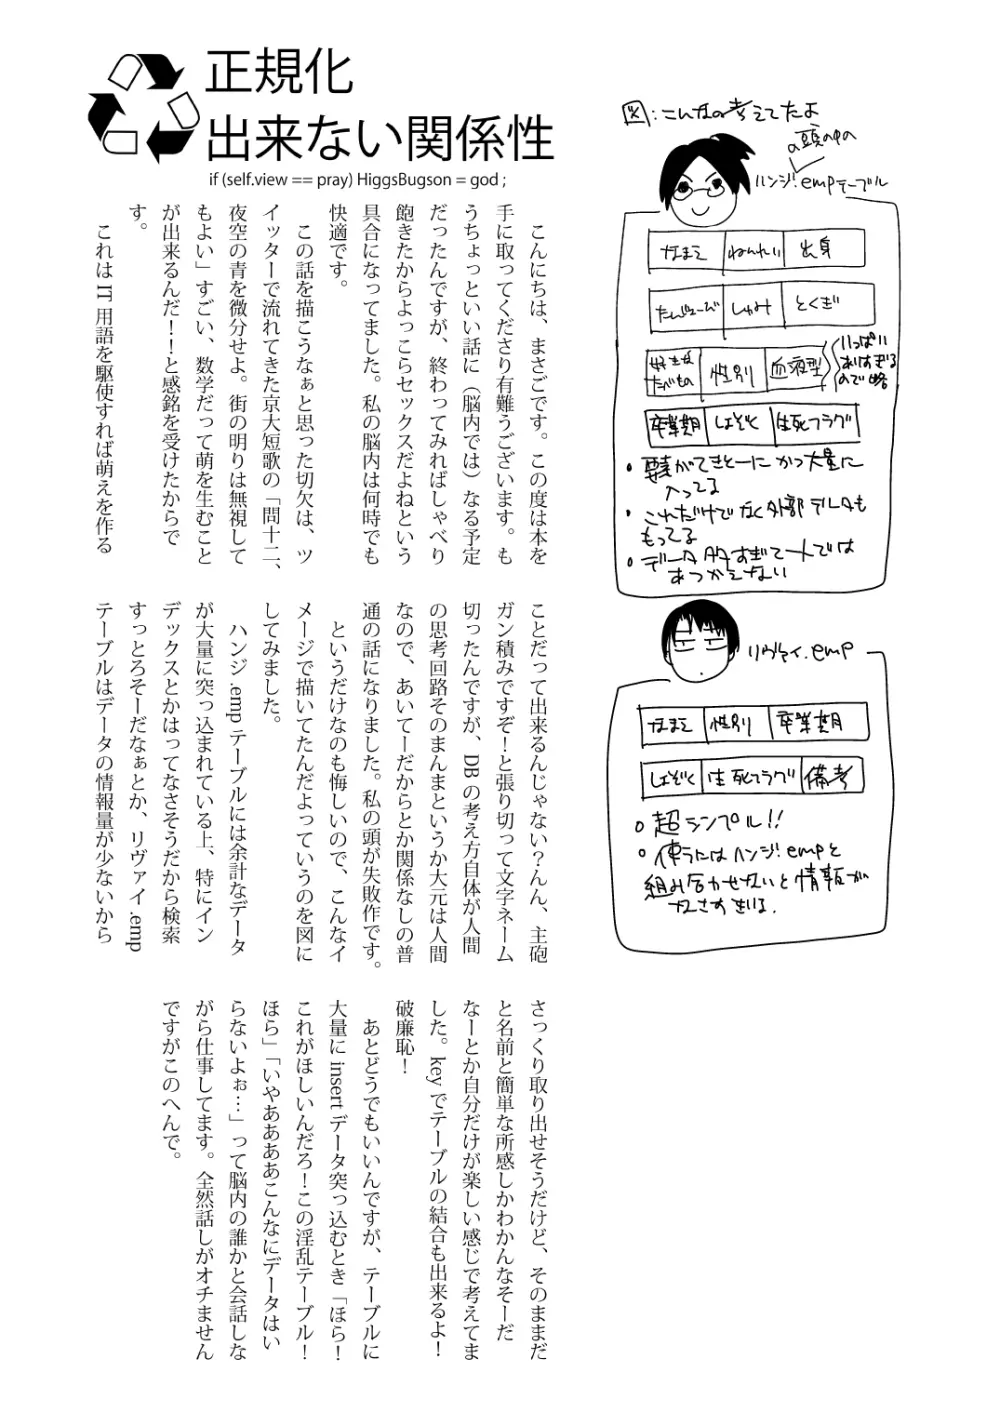 正規化
出来ない関係性
if (self.view == pray) HiggsBugson = god ;
こんにちは、まさごです。この度は本を
手に取ってくださり有難うございます。も
うちょっといい話に（脳内では）なる予定
だったんですが、終わってみればしゃべり
飽きたからよっこらセックスだよねという
具合になってました。私の脳内は何時でも
快適です。
この話を描こうなぁと思った切欠は、ツ
イッターで流れてきた京大短歌の「問十二、
夜空の青を微分せよ。街の明りは無視して
もよい」すごい、数学だって萌を生むこと
が出来るんだ！！と感銘を受けたからで
す。
これは IT 用語を駆使すれば萌えを作る
ことだって出来るんじゃない？んん、主砲
ガン積みですぞ！と張り切って文字ネーム
切ったんですが、DB の考え方自体が人間
の思考回路そのまんまというか大元は人間
なので、あいてーだからとか関係なしの普
通の話になりました。私の頭が失敗作です。
というだけなのも悔しいので、こんなイ
メージで描いてたんだよっていうのを図に
してみました。
ハンジ .emp テーブルには余計なデータ
が大量に突っ込まれている上、特にイン
デックスとかはってなさそうだから検索
すっとろそーだなぁとか、リヴァイ .emp
テーブルはデータの情報量が少ないから
さっくり取り出せそうだけど、そのままだ
と名前と簡単な所感しかわかんなそーだ
なーとか自分だけが楽しい感じで考えてま
した。key でテーブルの結合も出来るよ！
破廉恥！
あとどうでもいいんですが、テーブルに
大量に insert データ突っ込むとき「ほら！
これがほしいんだろ！この淫乱テーブル！
ほら」「いやああああこんなにデータはい
らないよぉ…」って脳内の誰かと会話しな
がら仕事してます。全然話しがオチません
ですがこのへんで。
図:こんなの考えてたよ
の頭の中の
ハンジ.empテーブル
なまえ ねんれい 出身
たんじょーび しゅみ とくぎ
好きなたべもの 性別 血液型
いっぱい
ありすぎる
ので略
卒業期 しょぞく 生死フラグ
・要素がてきとーに かつ大量に
入ってる
・これだけでなく外部データも
もってる
・データ多すぎて一人では
あつかえない
リヴァイ.emp
なまえ 性別 卒業期
しょぞく 生死フラグ 備考
○超シンプル!!
○使うにはハンジ.empと
組み合わせないと情報が
なさすぎる.